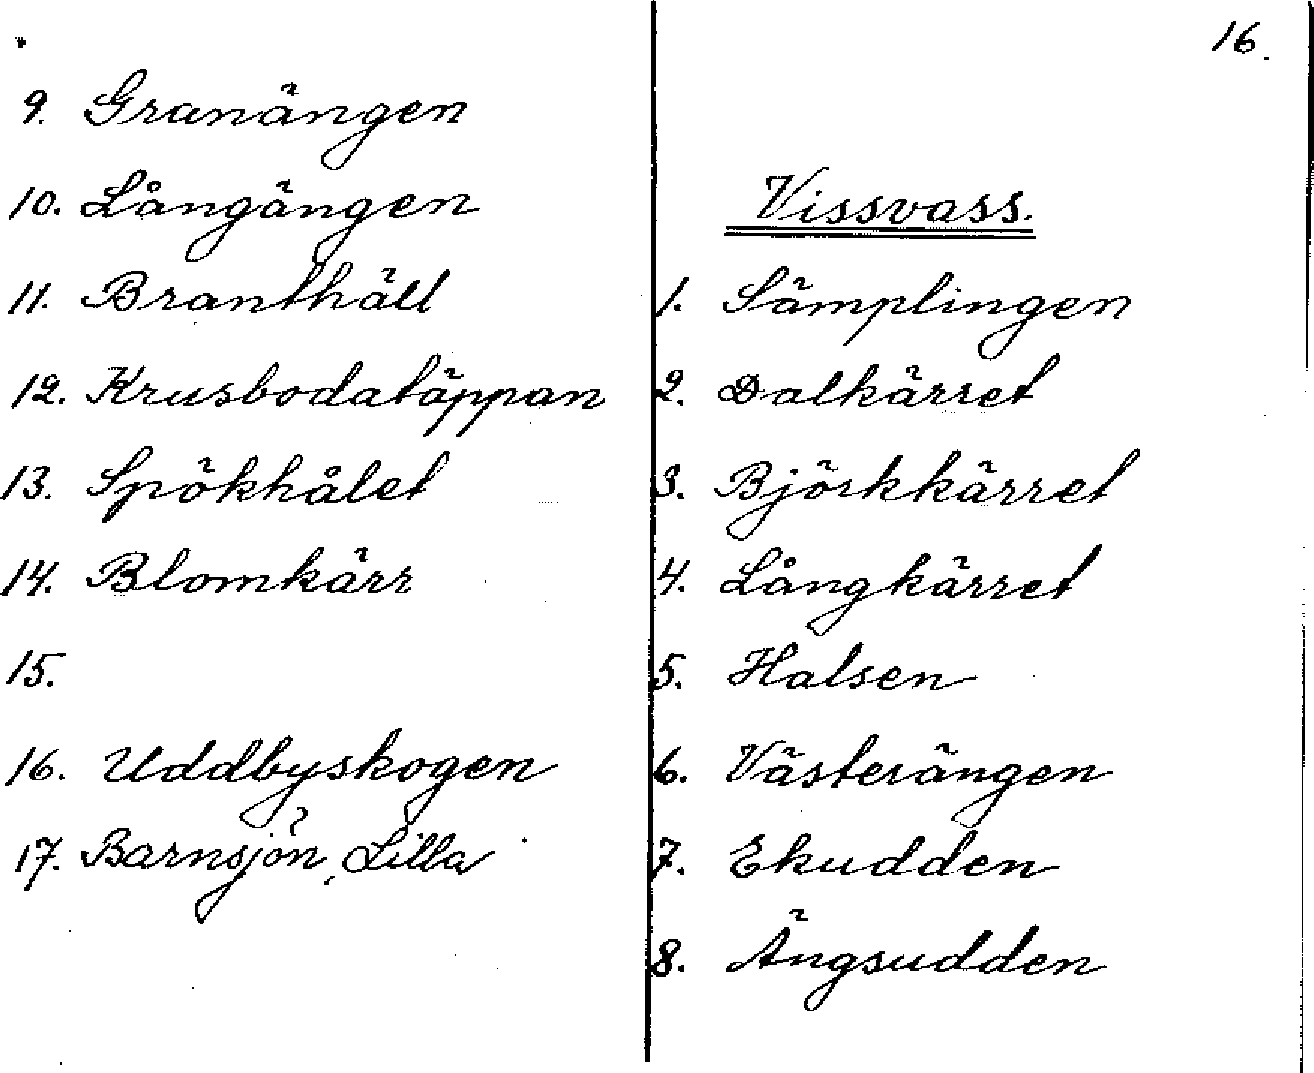 9. Granängen
10. Långängen
11. Branthäll
12. Krusbodatäppan
13. Spökhålet
14. Blomkärr
15.
16. Uddbyskogen
17. Barnsjön, Lilla
16.
Vissvass.
1. Sämplingen
2. Dalkärret
3. Björkkärret
4. Långkärret
5. Halsen
6. Västerängen
7. Ekudden
8. Ängsudden